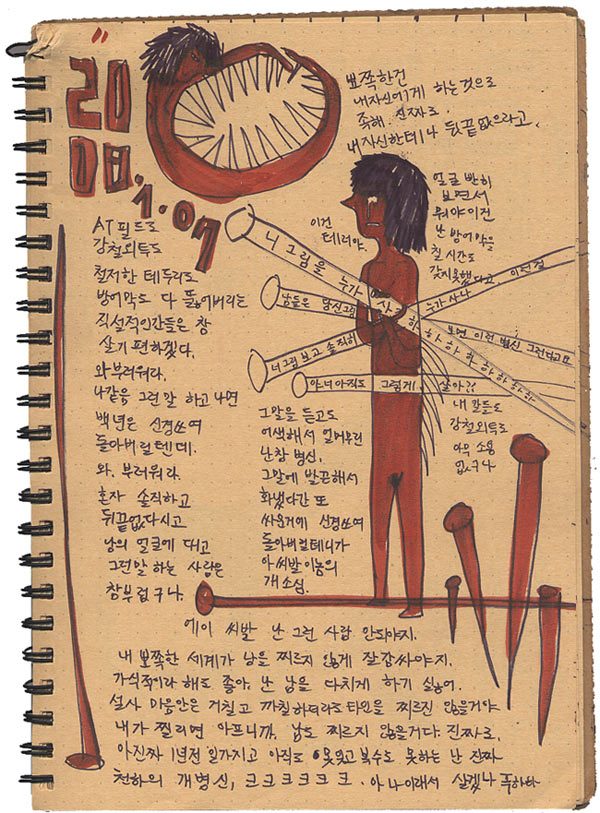 20
08.1.07
뾰쪽한건
내자신에게 하는것으로
족해. 진짜로.
내 자신한테나 뒤끝없으라고.
얼굴 빤히
보면서
뭐야이건
난 방어막을
칠 시간도
갖지못했다고.
이건
테러야.
니 그림을 누가 사 하하하하하하하하하하
남들은 당신그림
누가사나
이런걸
너그림 보고 솔직히
보면 이런 병신, 그런다고요
아너아직도 그렇게 살아?
내 말들도
강철외득도
아무 소용
없구나
AT필드도
강철외득도
철저한 테두리도
방어막도 다 뚫어버리는
직설적인간들은 참
살기 편하겠다.
와부러워라.
나같음 그런말 하고나면
백년은 신경쓰여
돌아버릴텐데.
와. 부러워라.
혼자 솔직하고
뒤끝없다시고
남의 얼굴에 대고
그런말 하는 사람은
참부럽구나.
그말을 듣고도
어색해서 얼어무린
난참 병신,
그말에 발끈해서
화냈다간 또
싸운거에 신경쓰여
돌아버릴테니까
아씨발이놈의
개소심.
에이 씨발 난 그런 사람 안되야지.
내 뾰쪽한 세계가 남을 찌르지 않게 잘감싸야지.
가식적이라 해도 좋아. 난 남을 다치게 하기 싫어.
설사 마음안은 거칠고 까칠하더라도 타인을 찌르진 않을거야
내가 찔리면 아프니까. 남도 찌르지 않을거다. 진짜로.
아진짜 1년전 일가지고 아직도 못잊고 복수도 못하는 난 진짜
천하의 개병신, 크크크크크크. 아 나이래서 살겠나 푹하하